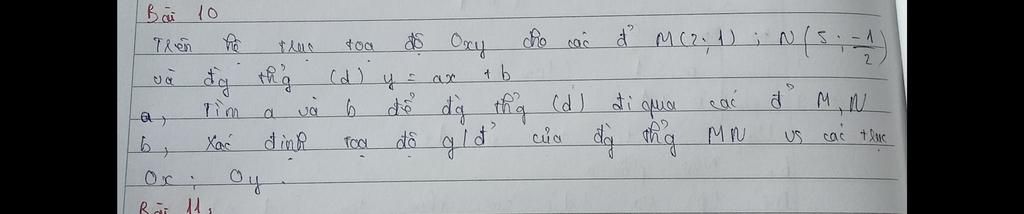 Bài 10
Trên hệ trục toạ độ Oxy cho các đ' M(2;1) ; N(5; -1/2)
và đg thg (d) y = ax + b
a, Tìm a và b để đg thg (d) đi qua các đ' M, N
b, Xác định toạ độ g/đ' của đg thg MN vs các trục
Ox ; Oy.
Bài 11: